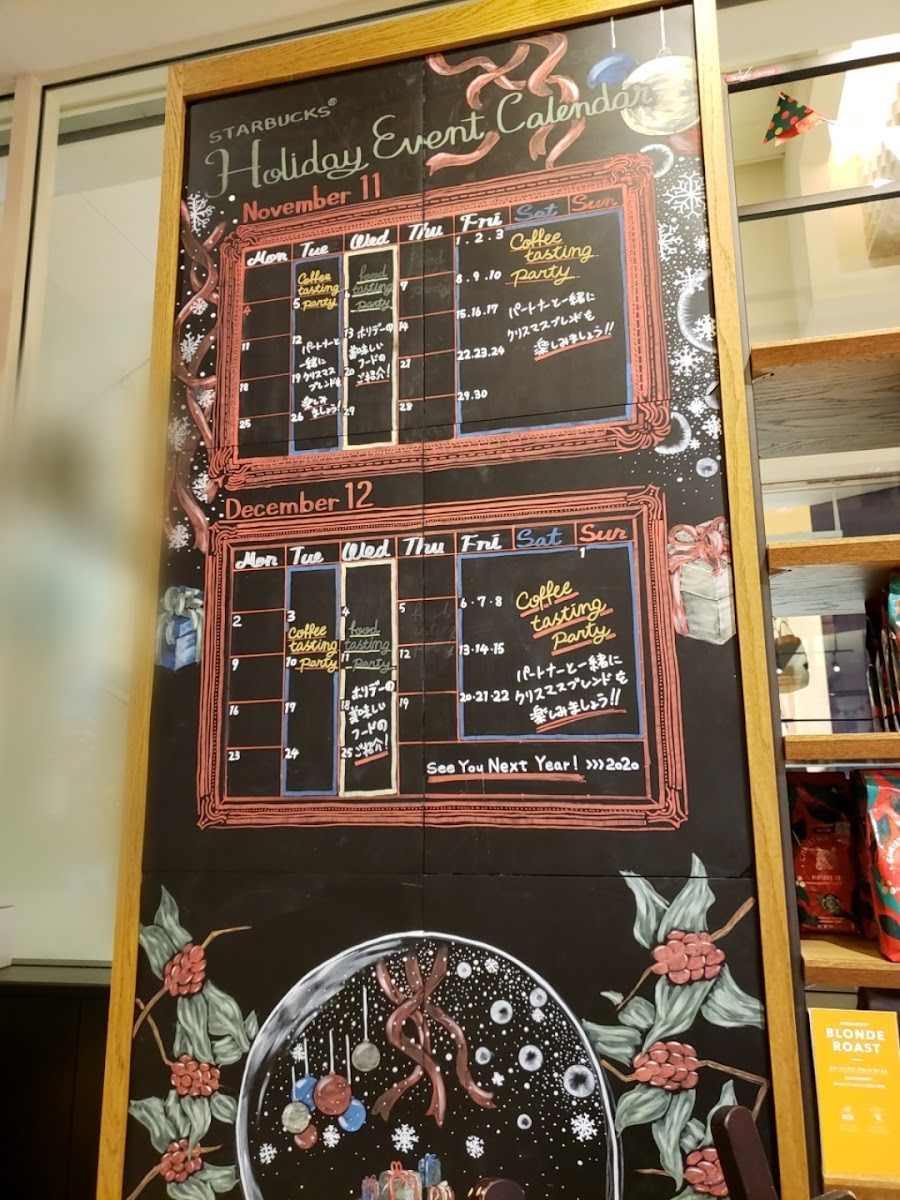 STARBUCKS®
Holiday Event Calendar
November 11
Mon Tue Wed Thu Fri Sat Sun
1.2.3
4 5 6 7 8.9.10
11 12 13 14 15.16.17
18 19 20 21 22.23.24
25 26 29 28 29.30
Coffee
tasting
party
パートナーと
一緒に
クリスマス
ブレンドを
楽しみ
ましょう!
food
tasting
party
ホリデーの
美味しい
フードの
ご紹介!
Coffee
tasting
party
パートナーと一緒に
クリスマスブレンドを
楽しみましょう!!
December 12
Mon Tue Wed Thu Fri Sat Sun
1
2 3 4 5 6.7.8
9 10 11 12 13.14.15
16 17 18 19 20.21.22
23 24 25
Coffee
tasting
party
food
tasting
party
ホリデーの
美味しい
フードの
ご紹介!
Coffee
tasting
party
パートナーと一緒に
クリスマスブレンドを
楽しみましょう!!
See You Next Year! >>>2020
BLONDE
ROAST